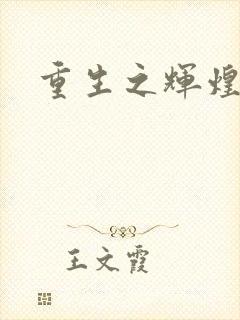 重生之辉煌
王文霞